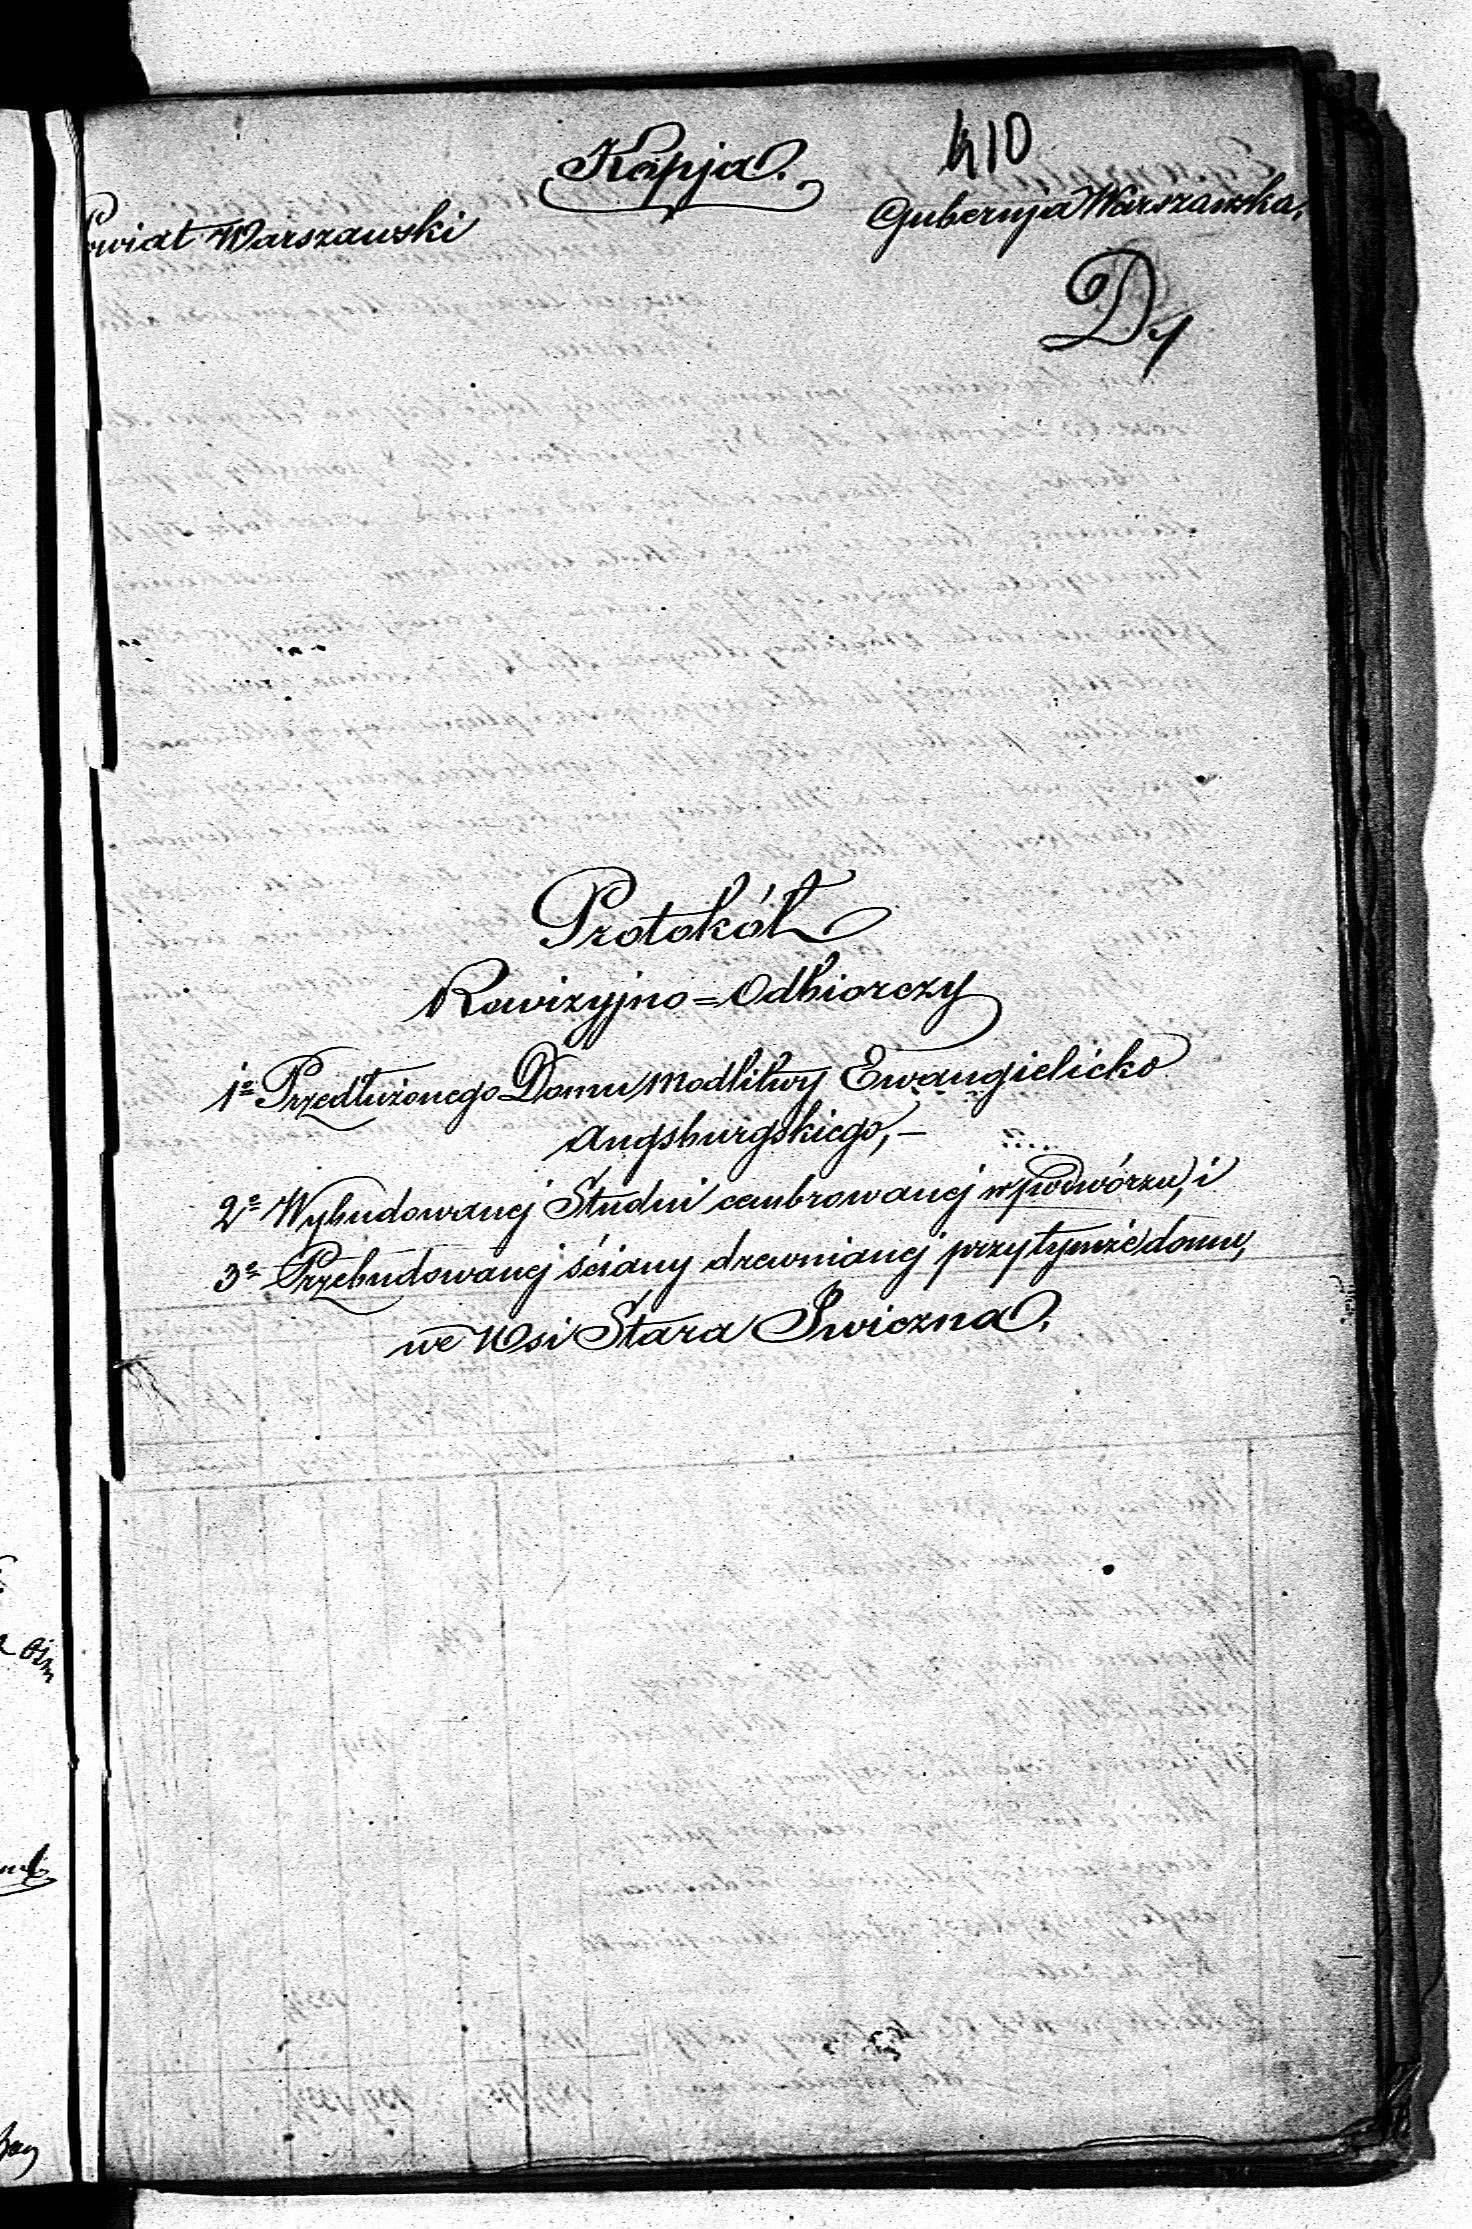 Kopja.
410
Powiat Warszawski
Gubernja Warszawska,
Protokół
Rewizyjno = Odbiorczy
1e Przedłużonego Domu Modlitwy Ewangielicko
Augsburgskiego, —
2e Wybudowanej Studni cembrowanej w podwórzu, i
3e Przebudowanej ściany drewnianej przy tymże domu,
we Wsi Stara Iwiczna.